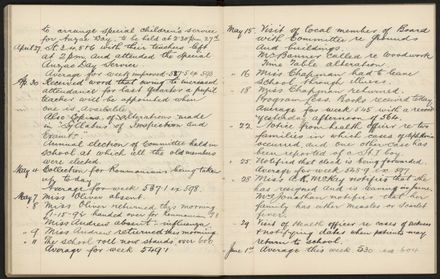 to arrange special children's service
for Anzac Day, to be held at 2.30 p.m. 27th
April 27. St. 2 to St 6 with their teachers left
at 2 p.m. and attended the special
Anzac Day Service.
Average for week
Ap. 30 Received word that owing to increased
attendance for last quarter a pupil
teacher will be appointed when
one is available.
Also copies of alterations made
in "Syllabus of Inspection and
Exams".
Annual election of Committee held in
school at which all the old members
were elected.
May 4 Collection for Kanmanians being taken
up to day.
Average for week 537.1 ex 598.
May 7 Miss Oliver absent.
" 8 Miss Oliver returned this morning
handed over for
Miss Andrews absent - influenza.
" 9 Miss Andrews returned this morning
" 11 The school roll now stands over 600.
Average for week 549.1
May 15. Visit of local member of Board
with Committee re grounds
and buildings.
Mr Banner called re Woodwork
Time Table alteration.
" 16 Miss Chapman had to leave
School through illness.
" 18 Miss Chapman returned.
Progress
Average for week 545 with a record
yesterday afternoon of 564.
" 22 Notice from Health officer re two
families in which cases of diphtheria
occurred and one other case has
been reported of a St. 1 boy.
" 25 Notified that clock is being forwarded.
Average for week 568.9 ex 597.
" 28 Miss A. McKay notifies that she
has resigned and is leaving in June.
Mrs Jonathan notifies that her
family has either Measles or Scarlet
fever.
" 29 Visit of Health Officer re cases of sickness
& notifying dates when patients may
return to school.
June 1st Average this week 530 ex 604